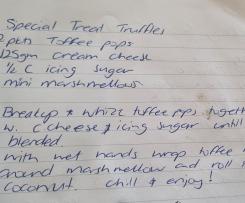 Special Treat Truffles
2 pkts Toffee pops
125gm Cream cheese
1/2 C icing sugar
mini marshmellows
Breakup & whizz toffee pps togeth
w. C cheese & icing sugar untill
blended.
with wet hands wrap toffee m
around marshmellow and roll i
coconut. chill & enjoy!